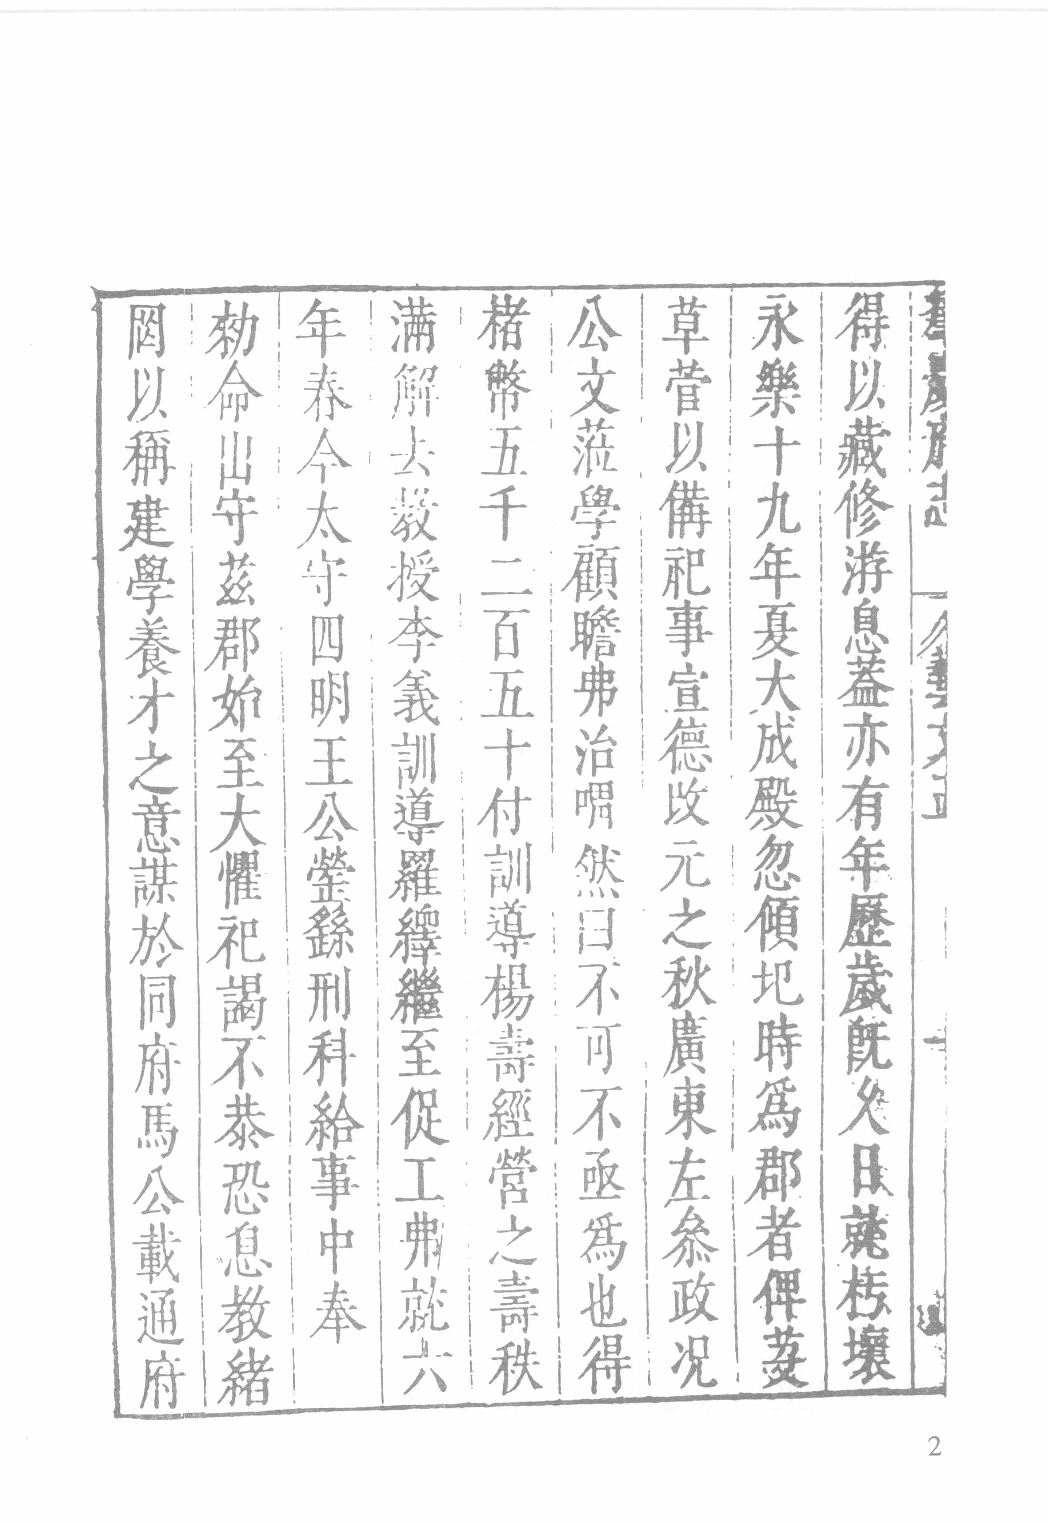 得以藏修游息葢亦有年歷歲旣久日薨朽壞
永樂十九年夏大成殿忽傾圮時爲郡者俾葺
草菅以備祀事宣德改元之秋廣東左叅政况
公文蒞學顧瞻弗治喟然曰不可不亟爲也得
楮幣五千二百五十付訓導楊壽經營之壽秩
滿解去教授李義訓導羅繹繼至促工弗就六
年春今太守四明王公瑩繇刑科給事中奉
勑命出守茲郡始至大懼祀謁不恭恐息教緒
罔以稱建學養才之意謀於同府馬公載通府
2